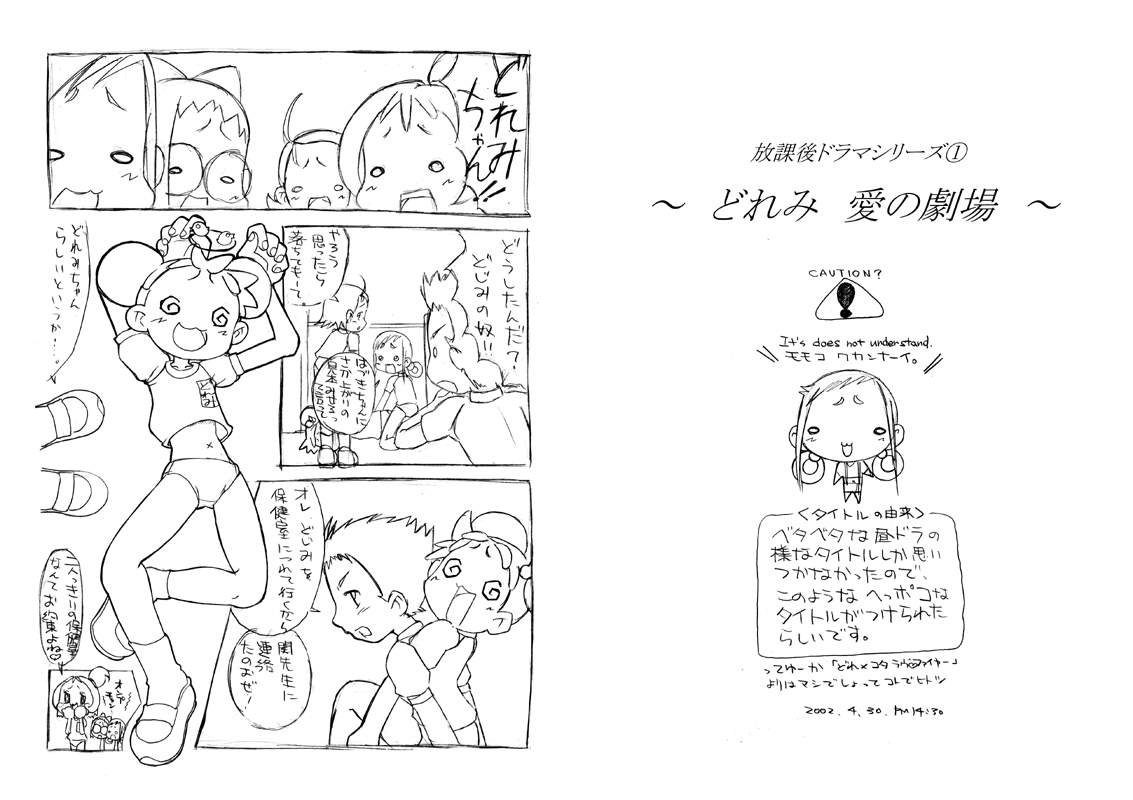 どれみ
ちゃん!!
どうしたんだ?
どじみの奴!!
やろう
思ったら
落ちてもーて。
はづきちゃんに
さか上がりの
見本みせるっ
て言って
どれみちゃん
らしいというか…。
オレ、どじみを
保健室につれて行くから
関先生に
連絡
たのむぜ!
二人っきりの保健室
なんてお約束よね♡
放課後ドラマシリーズ①
~ どれみ 愛の劇場 ~
CAUTION?
It's does not understand.
モモコ ワカンナーイ。
<タイトルの由来>
ベタベタな昼ドラの
様なタイトルしか思い
つかなかったので、
このような ヘッポコな
タイトルがつけられた
らしいです。
ってゆーか「どれ×コタ ラヴファイヤー」
よりはマシでしょってコレでヒトツ
2002. 4. 30. PM14:30